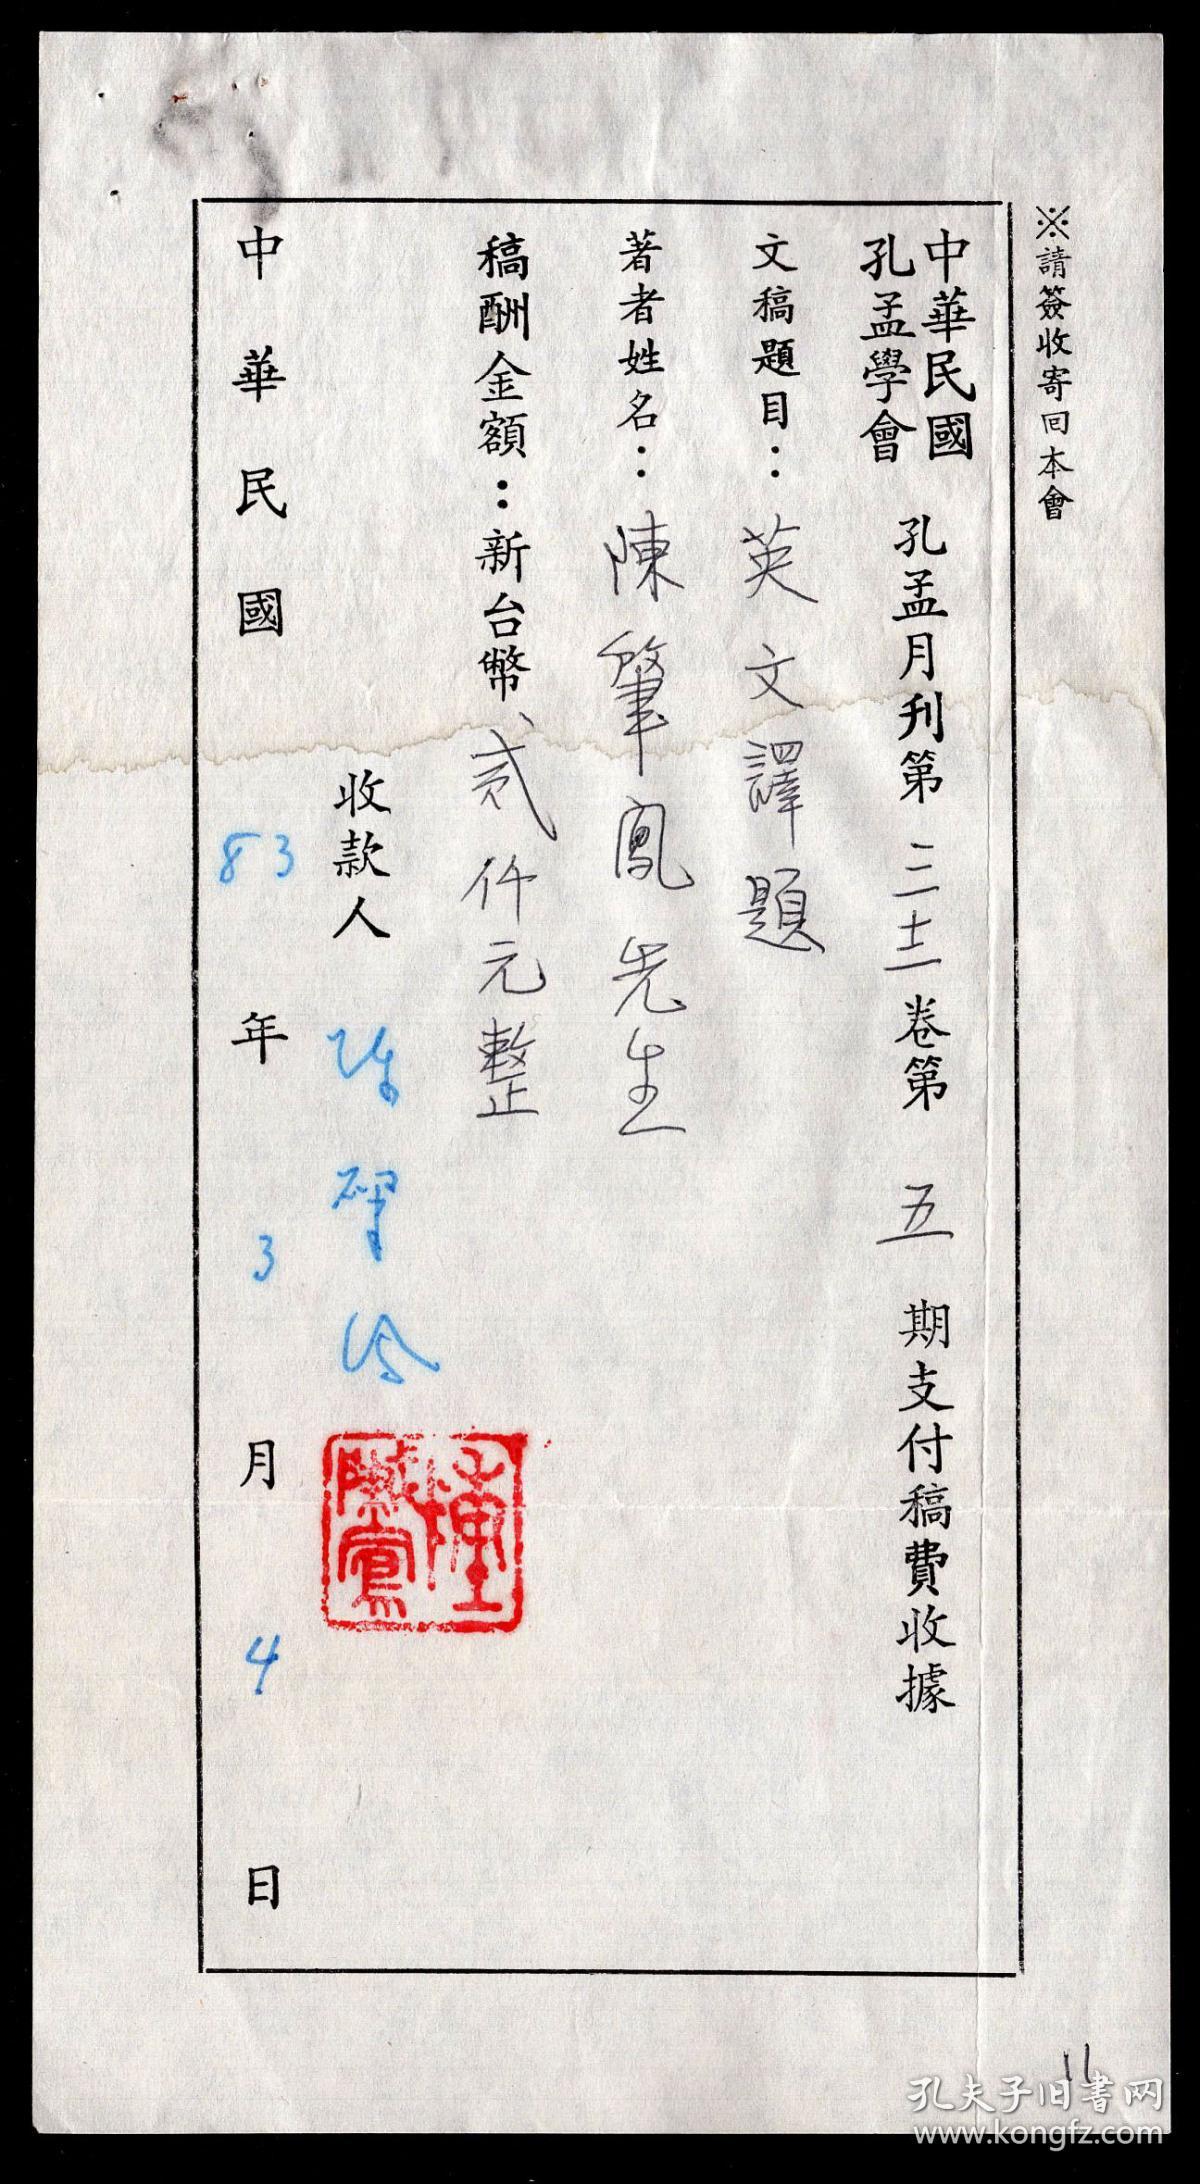 ※請簽收寄回本會
中華民國孔孟學會 孔孟月刊第三十二卷第五期支付稿費收據
文稿題目：英文譯題
著者姓名：陳肇鳳先生
稿酬金額：新台幣貳仟元整
收款人
中華民國83年3月4日
11
孔夫子旧书网
www.kongfz.com